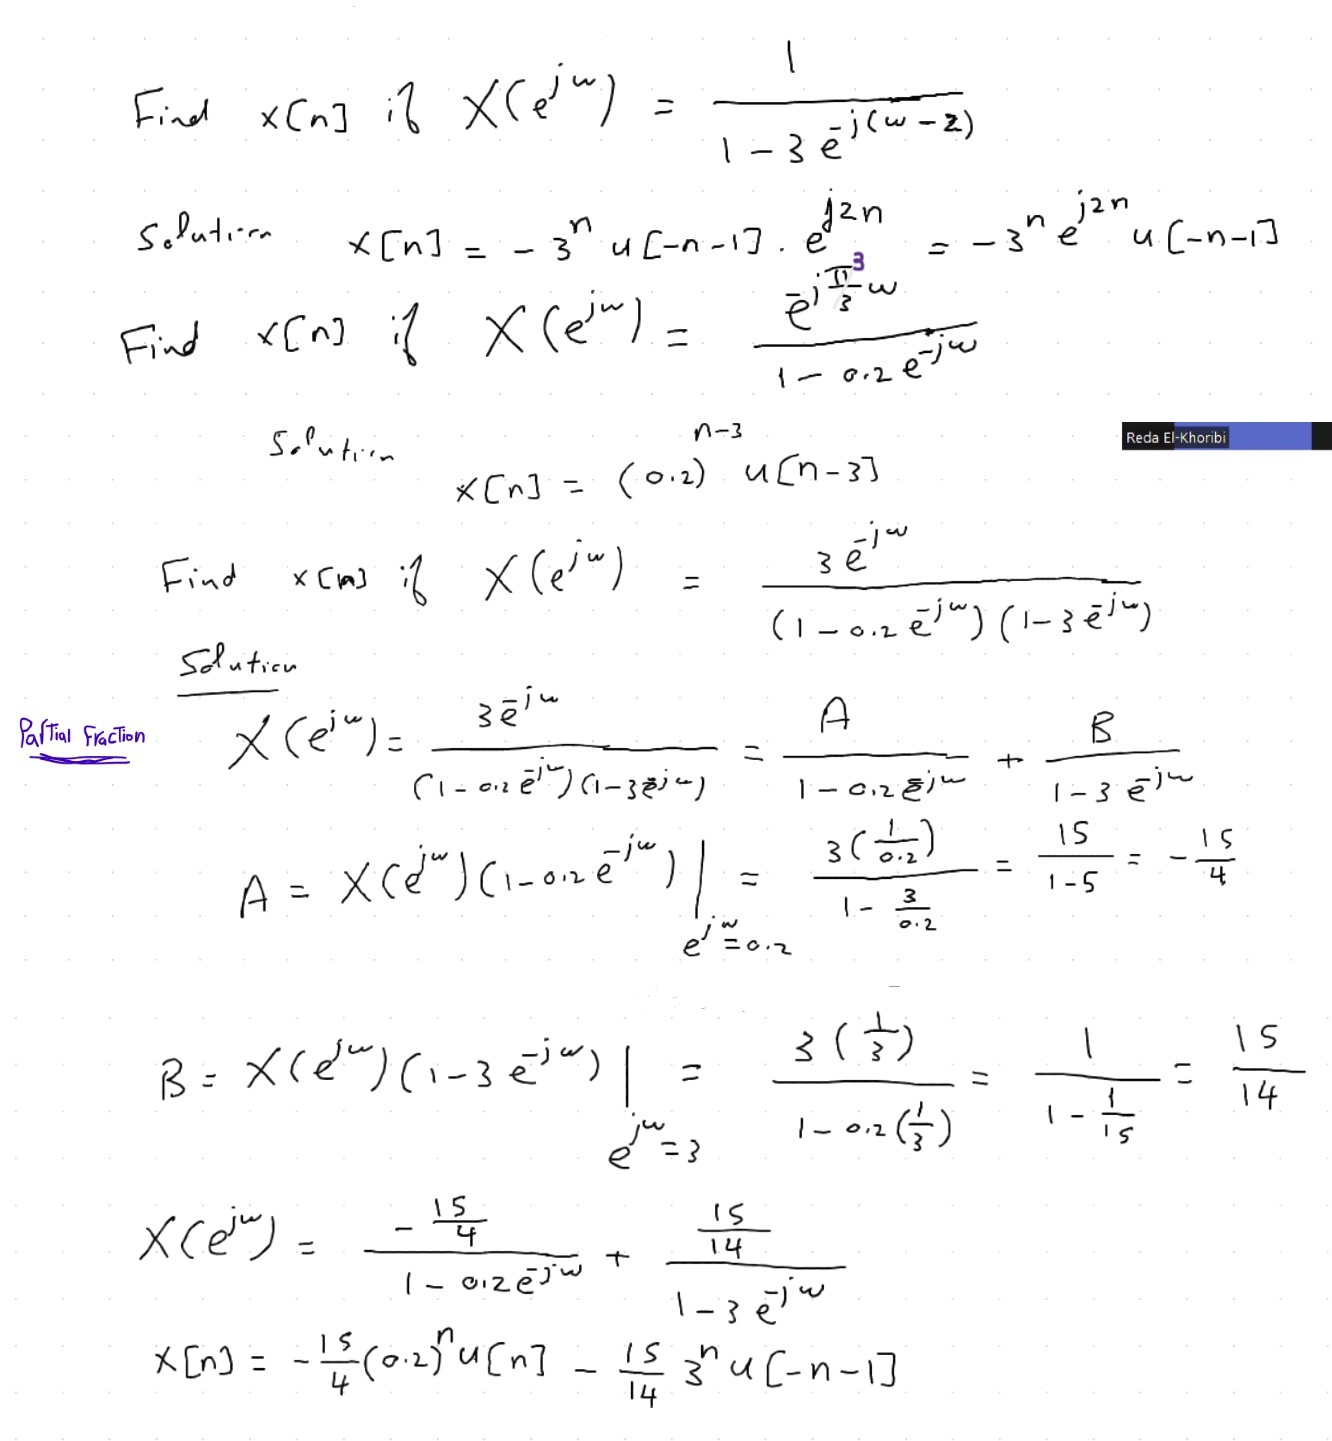 Find x[n] if X(e^{jω}) = 1 / (1 - 3 e^{-j(ω-2)})
Solution x[n] = -3^n u[-n-1] . e^{j2n} = -3^n e^{j2n} u[-n-1]
Find x[n] if X(e^{jω}) = e^{-j (π/3) 3 ω} / (1 - 0.2 e^{-jω})
Reda El-Khoribi
Solution
x[n] = (0.2)^{n-3} u[n-3]
Find x[n] if X(e^{jω}) = 3 e^{-jω} / ((1 - 0.2 e^{-jω}) (1 - 3 e^{-jω}))
Solution
Partial Fraction
X(e^{jω}) = 3 e^{-jω} / ((1 - 0.2 e^{-jω}) (1 - 3 e^{-jω})) = A / (1 - 0.2 e^{-jω}) + B / (1 - 3 e^{-jω})
A = X(e^{jω}) (1 - 0.2 e^{-jω}) |_{e^{jω} = 0.2} = 3(1/0.2) / (1 - 3/0.2) = 15 / (1-5) = - 15/4
B = X(e^{jω}) (1 - 3 e^{-jω}) |_{e^{jω} = 3} = 3(1/3) / (1 - 0.2(1/3)) = 1 / (1 - 1/15) = 15/14
X(e^{jω}) = (- 15/4) / (1 - 0.2 e^{-jω}) + (15/14) / (1 - 3 e^{-jω})
x[n] = - 15/4 (0.2)^n u[n] - 15/14 3^n u[-n-1]